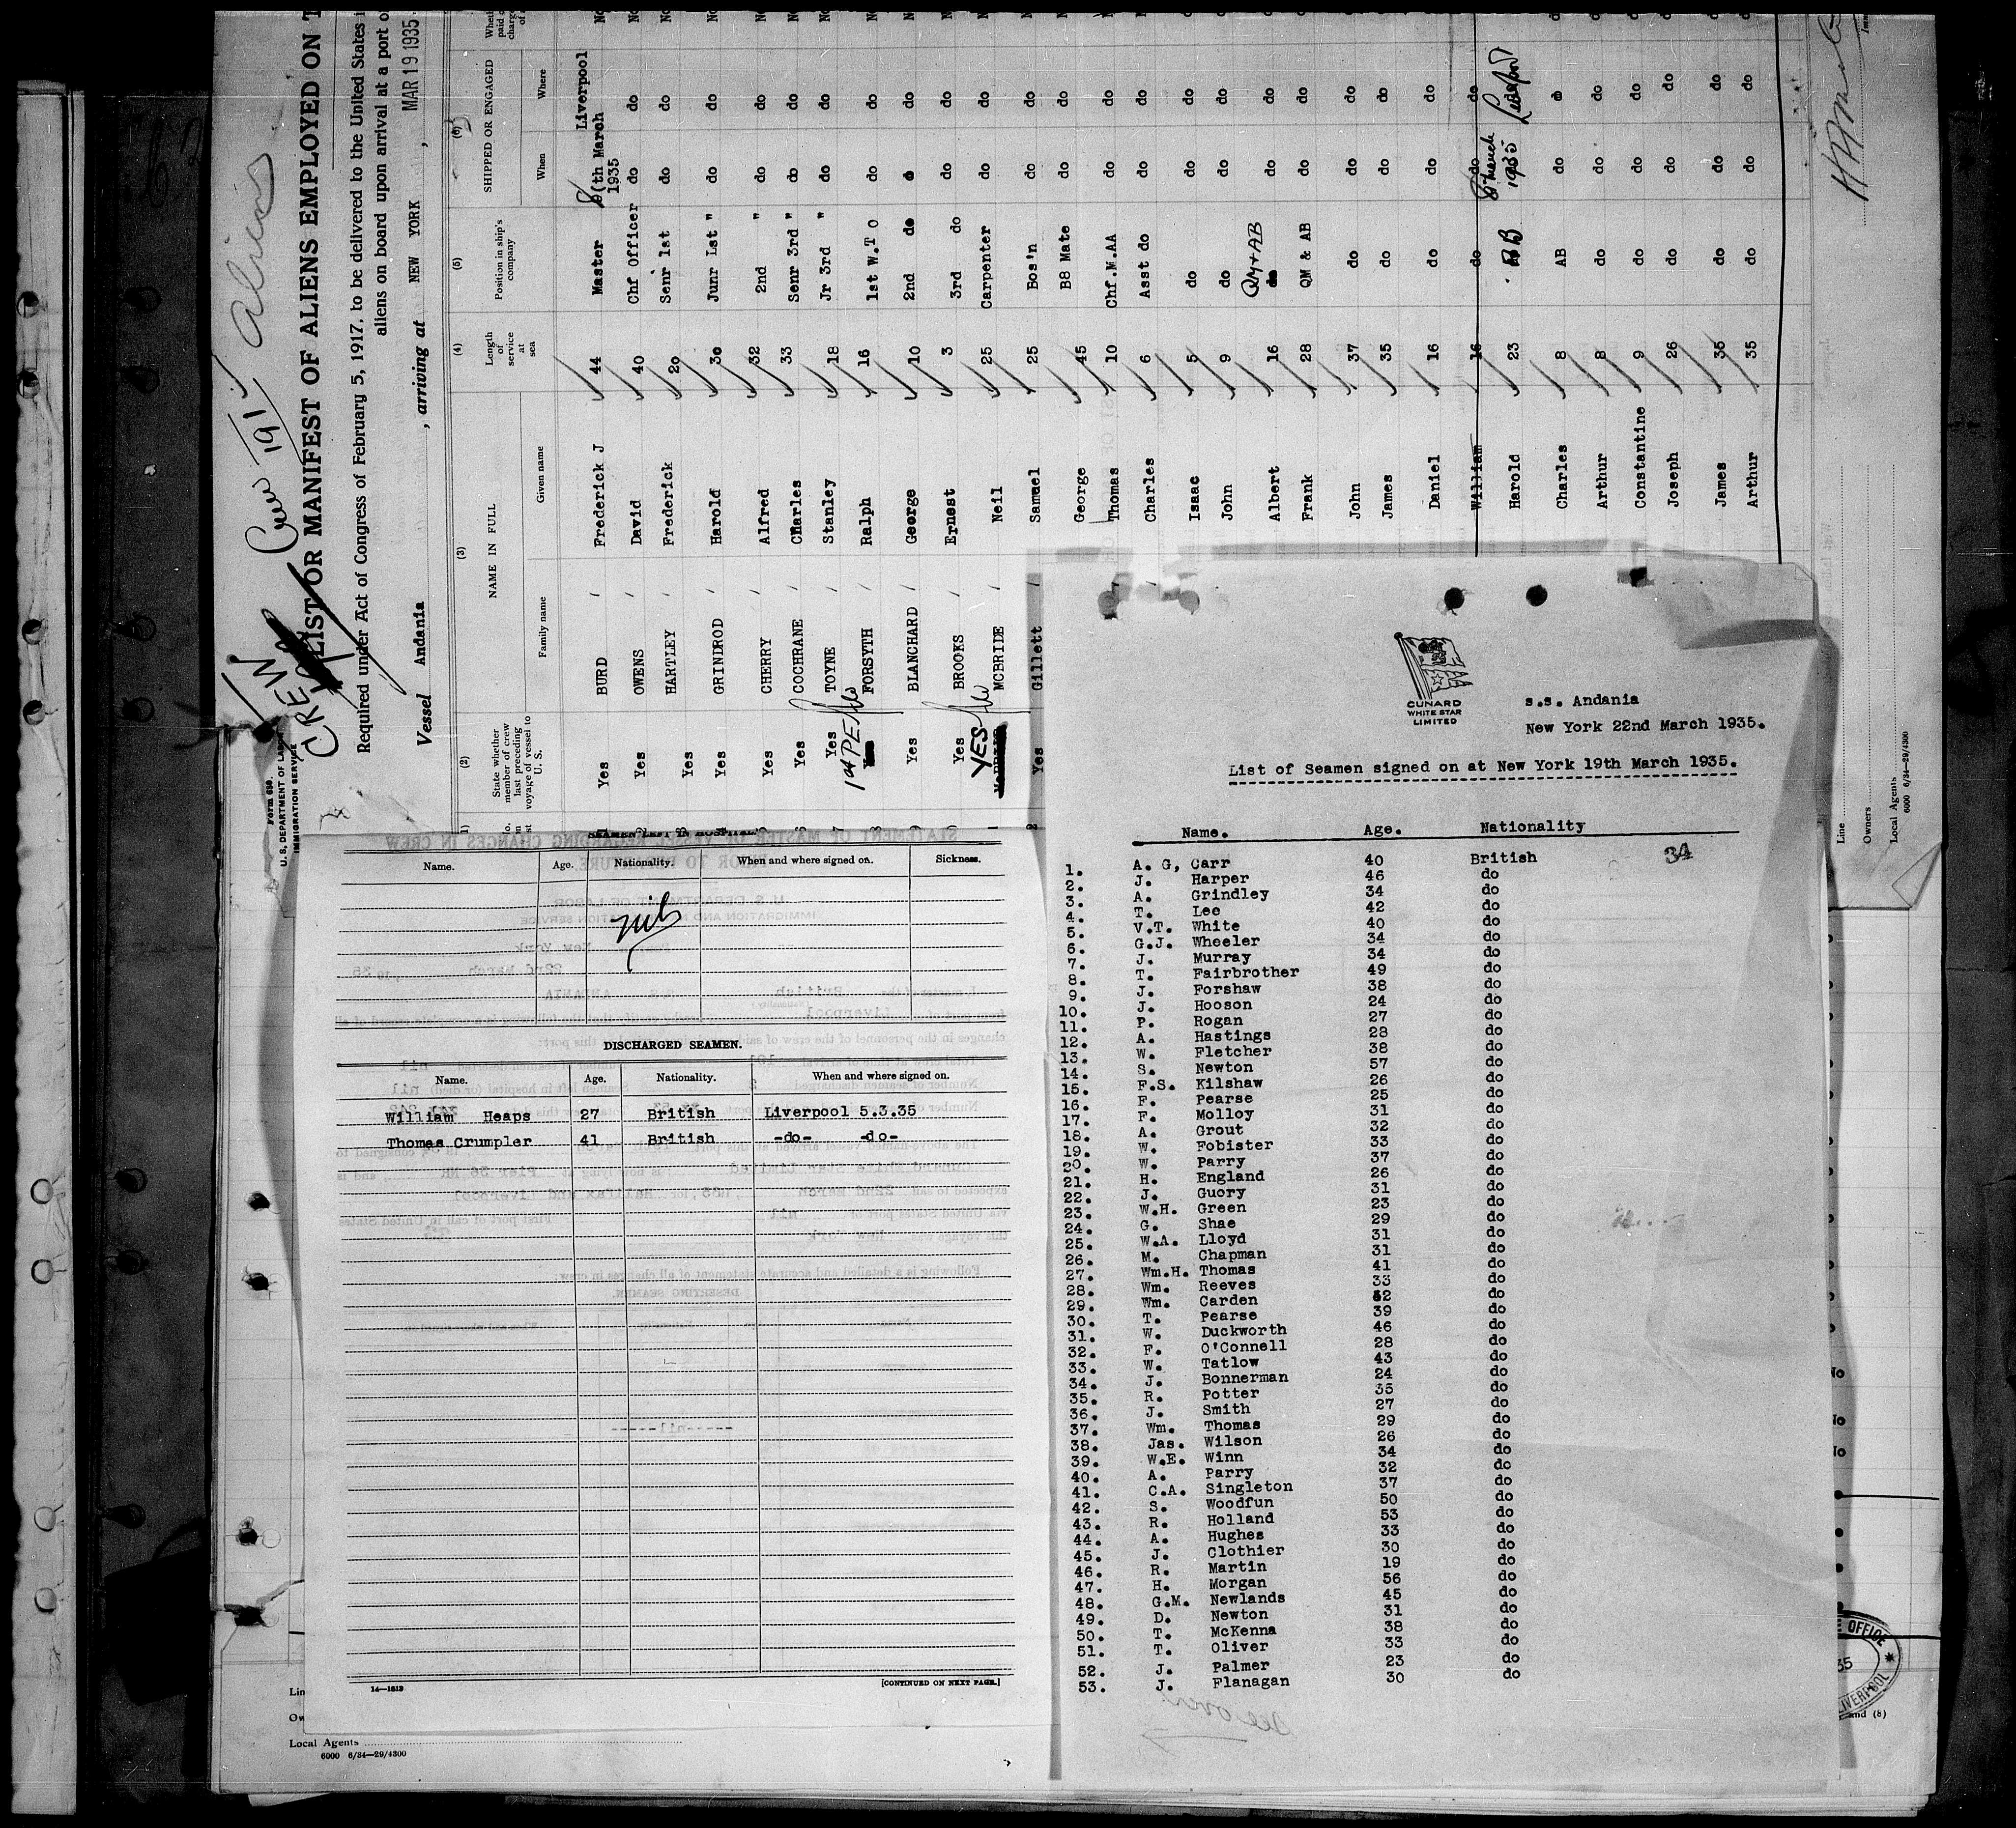 Form 680
U. S. DEPARTMENT OF LABOR
IMMIGRATION SERVICE
CREW
Crew 191
Aliens
LIST OR MANIFEST OF ALIENS EMPLOYED ON T
Required under Act of Congress of February 5, 1917, to be delivered to the United States i
aliens on board upon arrival at a port o
Vessel Andania , arriving at NEW YORK , MAR 19 1935
(2) (3) (4) (5) (6)
State whether member of crew last preceding voyage of vessel to U. S.
NAME IN FULL
Family name Given name
Length of service at sea
Position in ship's company
SHIPPED OR ENGAGED
When Where
Yes BURD Frederick J 44 Master 8(th March 1935 Liverpool
Yes OWENS David 40 Chf Officer do do
Yes HARTLEY Frederick 20 Senr 1st do do
Yes GRINDROD Harold 30 Junr 1st " do do
Yes CHERRY Alfred 32 2nd " do do
Yes COCHRANE Charles 33 Senr 3rd " do do
Yes TOYNE Stanley 18 Jr 3rd " do do
1st PE FORSYTH Ralph 16 1st W.T O do do
Yes BLANCHARD George 10 2nd do do do
Yes BROOKS Ernest 3 3rd do do do
YES MCBRIDE Neil 25 Carpenter do do
Yes Gillett Samuel 25 Bos'n do do
George 45 BS Mate do do
Thomas 10 Chf.M.AA do do
Charles 6 Asst do do do
Isaac 5 do do do
John 9 do do do
Albert 16 QM+AB do do
Frank 28 QM & AB do do
John 37 do do do
James 35 do do do
Daniel 16 do do do
William 16 do do do
Harold 23 AB 8th March 1935 Liverpool
Charles 8 AB do do
Arthur 8 do do do
Constantine 9 do do do
Joseph 26 do do do
James 35 do do do
Arthur 35 do do do
Line
Owners
Local Agents
6000 6/34—29/4300
SEAMEN LEFT IN HOSPITAL
Name. Age. Nationality. When and where signed on. Sickness.
nil
DISCHARGED SEAMEN.
Name. Age. Nationality. When and where signed on.
William Heaps 27 British Liverpool 5.3.35
Thomas Crumpler 41 British -do- -do-
14—1613
[CONTINUED ON NEXT PAGE.]
Lin
Ow
Local Agents
6000 6/34—29/4300
CUNARD
WHITE STAR
LIMITED
s.s. Andania
New York 22nd March 1935.
List of Seamen signed on at New York 19th March 1935.
Name. Age. Nationality
34
1. A. G, Carr 40 British
2. J. Harper 46 do
3. A. Grindley 34 do
4. T. Lee 42 do
5. V.T. White 40 do
6. G.J. Wheeler 34 do
7. J. Murray 34 do
8. T. Fairbrother 49 do
9. J. Forshaw 38 do
10. J. Hooson 24 do
11. P. Rogan 27 do
12. A. Hastings 28 do
13. W. Fletcher 38 do
14. S. Newton 57 do
15. F.S. Kilshaw 26 do
16. F. Pearse 25 do
17. F. Molloy 31 do
18. A. Grout 32 do
19. W. Fobister 33 do
20. W. Parry 37 do
21. H. England 26 do
22. J. Guory 31 do
23. W.H. Green 23 do
24. G. Shae 29 do
25. W.A. Lloyd 31 do
26. M. Chapman 31 do
27. Wm.H. Thomas 41 do
28. Wm. Reeves 33 do
29. Wm. Carden 52 do
30. T. Pearse 39 do
31. W. Duckworth 46 do
32. F. O'Connell 28 do
33. W. Tatlow 43 do
34. J. Bonnerman 24 do
35. R. Potter 35 do
36. J. Smith 27 do
37. Wm. Thomas 29 do
38. Jas. Wilson 26 do
39. W.E. Winn 34 do
40. A. Parry 32 do
41. C.A. Singleton 37 do
42. S. Woodfun 50 do
43. R. Holland 53 do
44. A. Hughes 33 do
45. J. Clothier 30 do
46. R. Martin 19 do
47. H. Morgan 56 do
48. G.M. Newlands 45 do
49. D. Newton 31 do
50. T. McKenna 38 do
51. T. Oliver 33 do
52. J. Palmer 23 do
53. J. Flanagan 30 do
No
No
No
OFFICE
35
LIVERPOOL
and (8)